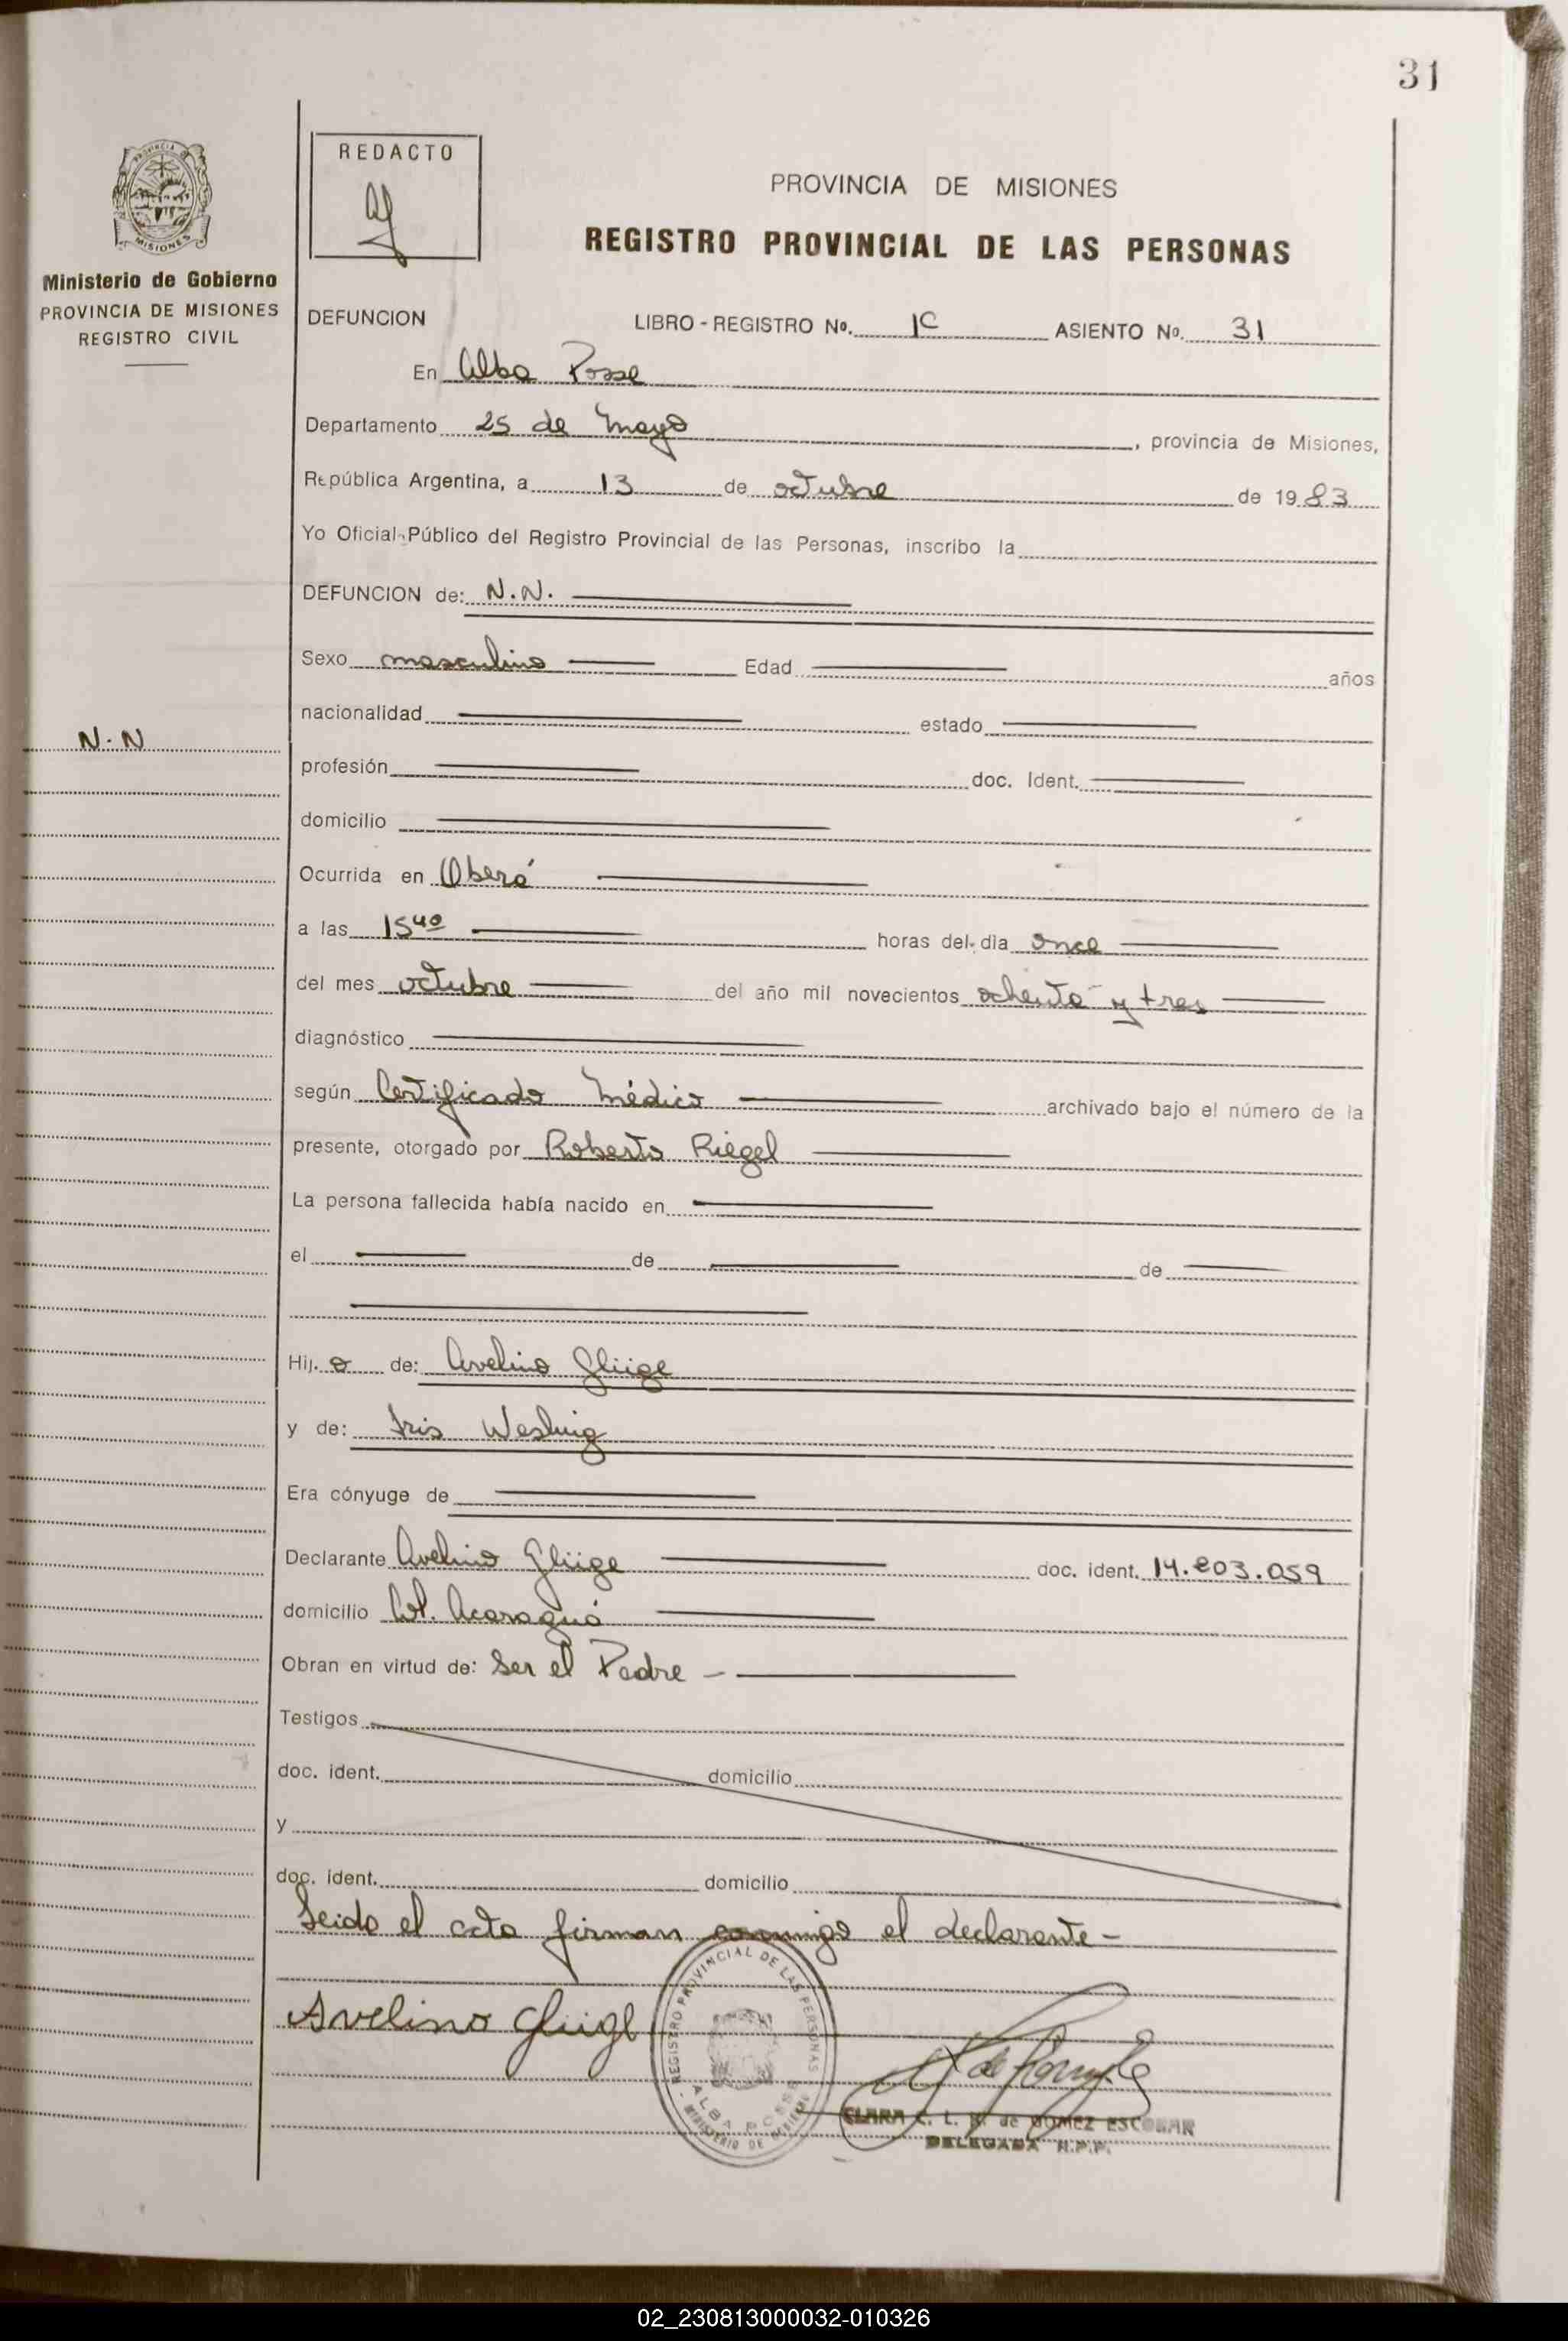 31
PROVINCIA DE
MISIONES
Ministerio de Gobierno
PROVINCIA DE MISIONES
REGISTRO CIVIL
REDACTO
PROVINCIA DE MISIONES
REGISTRO PROVINCIAL DE LAS PERSONAS
DEFUNCION LIBRO - REGISTRO Nº. 1C ASIENTO Nº. 31
En Alba Posse
Departamento 25 de Mayo, provincia de Misiones,
República Argentina, a 13 de octubre de 1983
Yo Oficial Público del Registro Provincial de las Personas, inscribo la
DEFUNCION de: N.N.
Sexo masculino Edad años
nacionalidad estado
N.N
profesión doc. Ident.
domicilio
Ocurrida en Oberá
a las 15 40 horas del día once
del mes octubre del año mil novecientos ochenta y tres
diagnóstico
según Certificado Médico archivado bajo el número de la
presente, otorgado por Roberto Riegel
La persona fallecida había nacido en
el de de
Hij. o de: Avelino Glüge
y de: Iris
Era cónyuge de
Declarante Avelino Glüge doc. ident. 14.203.059
domicilio Col. Acaraguá
Obran en virtud de: Ser el Padre -
Testigos
doc. ident. domicilio
y
doc. ident. domicilio
Leido el acta firman conmigo el declarante -
Avelino Glüge
REGISTRO PROVINCIAL DE LAS PERSONAS
ALBA POSSE
MINISTERIO DE GOBIERNO
CLARA C. L. de GOMEZ ESCOBAR
DELEGADA R.P.P.
02_230813000032-010326